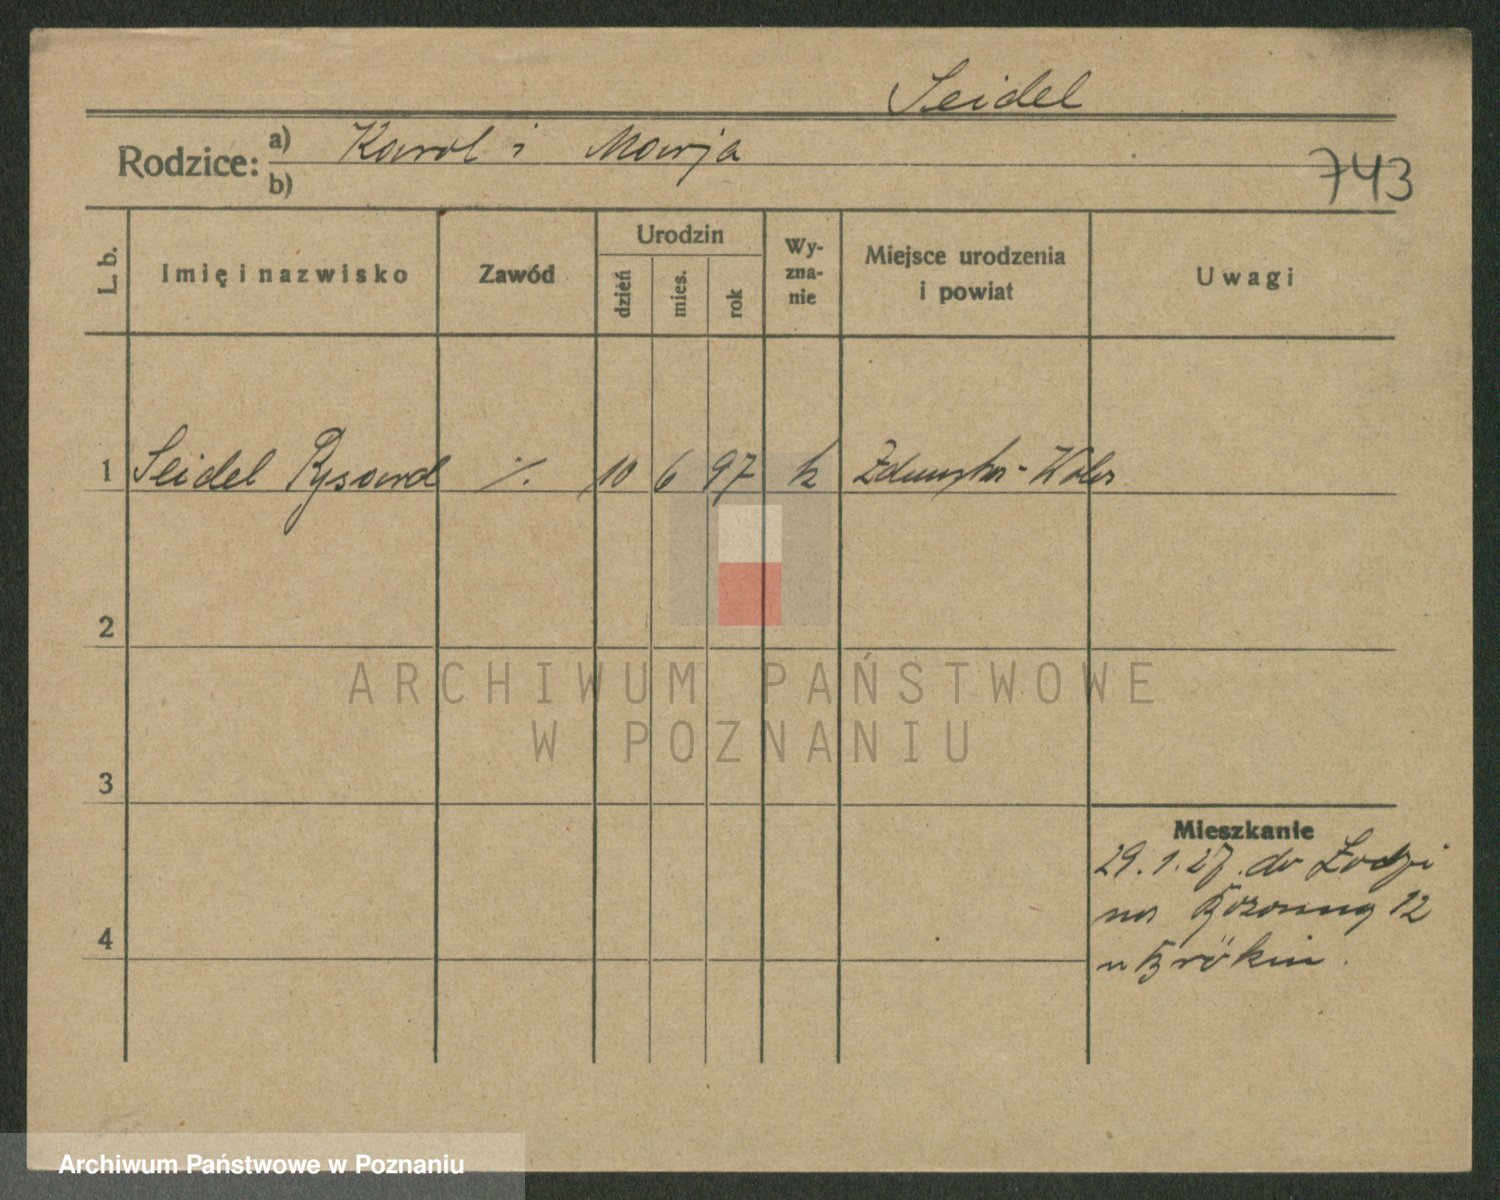 Seidel
Rodzice: a) Karol i Marja
b)
743
L. b.
Imię i nazwisko
Zawód
Urodzin
dzień
mies.
rok
Wy-
zna-
nie
Miejsce urodzenia
i powiat
Uwagi
1 Seidel Rysard ./. 10 6 97 k Zduńska-Wola
2
3
4
Mieszkanie
29.1.27. do Łodzi
na 12
u
ARCHIWUM PAŃSTWOWE
W POZNANIU
Archiwum Państwowe w Poznaniu